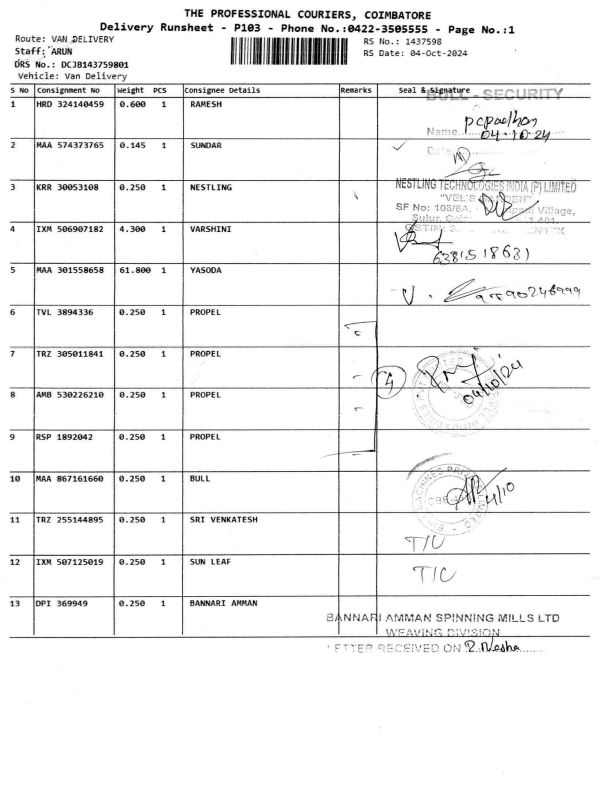 THE PROFESSIONAL COURIERS, COIMBATORE
Delivery Runsheet - P103 - Phone No.:0422-3505555 - Page No.:1
Route: VAN DELIVERY
RS No.: 1437598
Staff: ARUN
RS Date: 04-Oct-2024
DRS No.: DCJB143759801
Vehicle: Van Delivery
S No Consignment No Weight PCS Consignee Details Remarks Seal & Signature
BULL - SECURITY
1 HRD 324140459 0.600 1 RAMESH
Name
04-10-24
2 MAA 574373765 0.145 1 SUNDAR
Date
3 KRR 30053108 0.250 1 NESTLING
NESTLING TECHNOLOGIES INDIA (P) LIMITED
"VEL'S
SF No: 103/6A, Village,
Sulur,
4 IXM 506907182 4.300 1 VARSHINI
6381518631
5 MAA 301558658 61.800 1 YASODA
6 TVL 3894336 0.250 1 PROPEL
7 TRZ 305011841 0.250 1 PROPEL
4
04/10/24
8 AMB 530226210 0.250 1 PROPEL
9 RSP 1892042 0.250 1 PROPEL
10 MAA 867161660 0.250 1 BULL
4/10
11 TRZ 255144895 0.250 1 SRI VENKATESH
T/C
12 IXM 507125019 0.250 1 SUN LEAF
T/C
13 DPI 369949 0.250 1 BANNARI AMMAN
BANNARI AMMAN SPINNING MILLS LTD
WEAVING DIVISION
LETTER RECEIVED ON